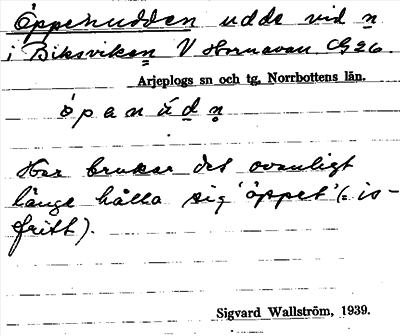 Öppenudden udde vid n
i Biksviken V Hornavan CG26.
Arjeplogs sn och tg, Norrbottens län.
öpanúdn
Här brukar det ovanligt
länge hålla sig 'öppet' (= is-
fritt).
Sigvard Wallström, 1939.